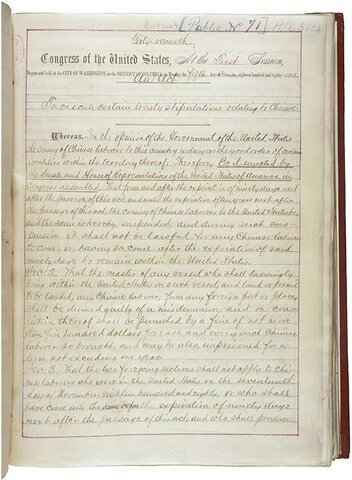 Public No 71
Forty-seventh
Congress of the United States, At the First Session,
Begun and held at the CITY OF WASHINGTON, in the DISTRICT OF COLUMBIA, on Monday, the fifth day of December, eighteen hundred and eighty-
An Act
To execute certain treaty stipulations relating to Chinese.
Whereas, In the opinion of the Government of the United States
the coming of Chinese laborers to this country endangers the good order of certain
localities within the territory thereof: Therefore, Be it enacted by
the Senate and House of Representatives of the United States of America in
Congress assembled, That from and after the expiration of ninety days next
after the passage of this act, and until the expiration of ten years next after
the passage of this act, the coming of Chinese laborers to the United States be,
and the same is hereby, suspended; and during such sus-
pension it shall not be lawful for any Chinese laborer
to come, or, having so come after the expiration of said
ninety days, to remain within the United States.
Sec. 2. That the master of any vessel who shall knowingly
bring within the United States on such vessel, and land or permit
to be landed, any Chinese laborer, from any foreign port or place,
shall be deemed guilty of a misdemeanor, and on con-
viction thereof shall be punished by a fine of not more
than five hundred dollars for each and every such Chinese
laborer so brought, and may be also imprisoned for a
term not exceeding one year.
Sec. 3. That the two foregoing sections shall not apply to Chi-
nese laborers who were in the United States on the seventeenth
day of November, eighteen hundred and eighty, or who shall
have come into the same before the expiration of ninety days
next after the passage of this act, and who shall produce